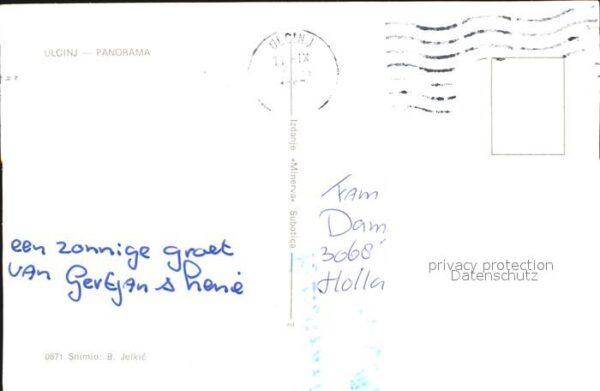 ULCINJ — PANORAMA
ULCINJ
11 IX
Izdanje »Minerva« Subotica
Fam
Dam
3068
Holla
privacy protection
Datenschutz
een zonnige groet
van Gertjan & Lenie
0871 Snimio: B. Jelkić